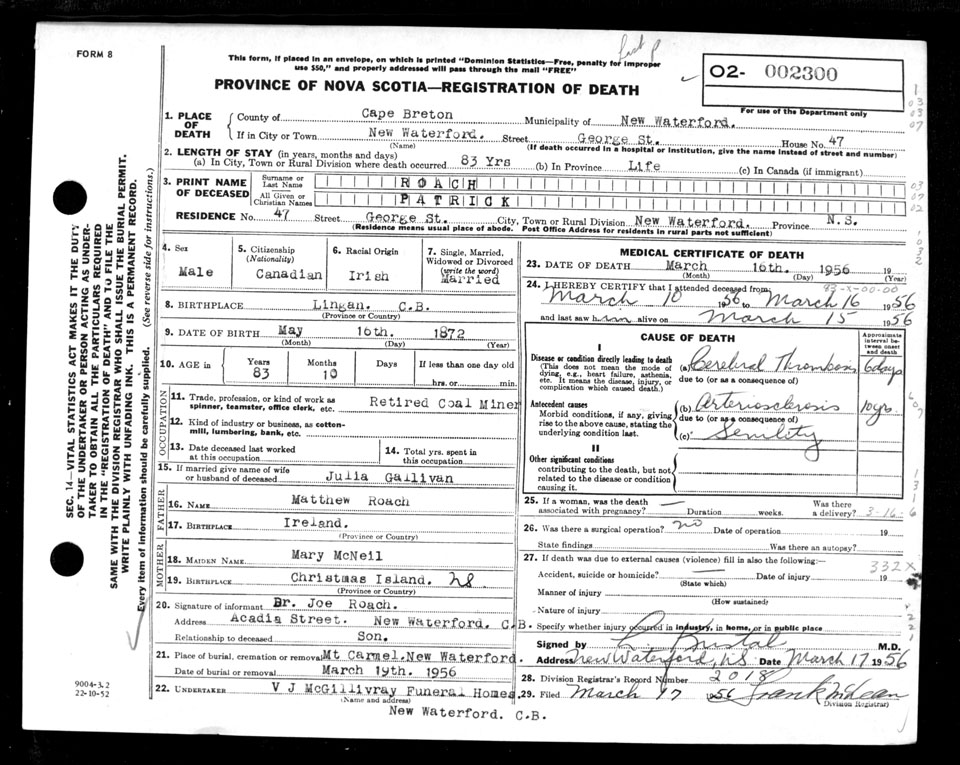 FORM 8
This form, if placed in an envelope, on which is printed "Dominion Statistics—Free, penalty for improper
use $50," and properly addressed will pass through the mail "FREE"
PROVINCE OF NOVA SCOTIA—REGISTRATION OF DEATH
02- 002300
For use of the Department only
1. PLACE OF DEATH
County of Cape Breton Municipality of New Waterford.
If in City or Town New Waterford. Street George St. House No. 47
(Name) (If death occurred in a hospital or institution, give the name instead of street and number)
2. LENGTH OF STAY (in years, months and days)
(a) In City, Town or Rural Division where death occurred 83 Yrs (b) In Province Life (c) In Canada (if immigrant)
3. PRINT NAME OF DECEASED
Surname or Last Name ROACH
All Given or Christian Names PATRICK
RESIDENCE No. 47 Street George St. City, Town or Rural Division New Waterford. Province N.S.
(Residence means usual place of abode. Post Office Address for residents in rural parts not sufficient)
4. Sex Male
5. Citizenship (Nationality) Canadian
6. Racial Origin Irish
7. Single, Married, Widowed or Divorced (write the word) Married
8. BIRTHPLACE Lingan. C.B.
(Province or Country)
9. DATE OF BIRTH May 16th. 1872
(Month) (Day) (Year)
10. AGE in Years 83 Months 10 Days If less than one day old hrs. or min.
OCCUPATION
11. Trade, profession, or kind of work as spinner, teamster, office clerk, etc. Retired Coal Miner
12. Kind of industry or business, as cotton-mill, lumbering, bank, etc.
13. Date deceased last worked at this occupation
14. Total yrs. spent in this occupation
15. If married give name of wife or husband of deceased Julia Gallivan
FATHER
16. NAME Matthew Roach
17. BIRTHPLACE Ireland.
(Province or Country)
MOTHER
18. MAIDEN NAME Mary McNeil
19. BIRTHPLACE Christmas Island. NS
(Province or Country)
20. Signature of informant Dr. Joe Roach.
Address Acadia Street. New Waterford. C.B.
Relationship to deceased Son.
21. Place of burial, cremation or removal Mt Carmel.New Waterford.
Date of burial or removal March 19th. 1956
22. UNDERTAKER V J McGillivray Funeral Homes
(Name and address)
New Waterford. C.B.
MEDICAL CERTIFICATE OF DEATH
23. DATE OF DEATH March 16th. 1956 19
(Month) (Day) (Year)
83-X-00-00
24. I HEREBY CERTIFY that I attended deceased from:
March 10 1956 to March 16 1956
and last saw him alive on March 15 1956
CAUSE OF DEATH
Approximate interval between onset and death
I
Disease or condition directly leading to death
(This does not mean the mode of dying, e.g., heart failure, asthenia, etc. It means the disease, injury, or complication which caused death.)
(a) Cerebral Thrombosis 6days
due to (or as a consequence of)
Antecedent causes
Morbid conditions, if any, giving rise to the above cause, stating the underlying condition last.
(b) Arteriosclerosis 10yrs.
due to (or as a consequence of)
(c) Senility
II
Other significant conditions
contributing to the death, but not related to the disease or condition causing it.
25. If a woman, was the death associated with pregnancy? — Duration weeks. Was there a delivery?
3-16-6
26. Was there a surgical operation? no Date of operation 19
State findings Was there an autopsy?
27. If death was due to external causes (violence) fill in also the following:—
332X
Accident, suicide or homicide? — Date of injury 19
(State which)
Manner of injury
(How sustained)
Nature of injury
Specify whether injury occurred in industry, in home, or in public place
Signed by M.D.
Address New Waterford, NS Date March 17 1956
28. Division Registrar's Record Number 2018
29. Filed March 17 1956 Frank McLean
(Division Registrar)
SEC. 14—VITAL STATISTICS ACT MAKES IT THE DUTY
OF THE UNDERTAKER OR PERSON ACTING AS UNDER-
TAKER TO OBTAIN ALL THE PARTICULARS REQUIRED
IN THE "REGISTRATION OF DEATH" AND TO FILE THE
SAME WITH THE DIVISION REGISTRAR WHO SHALL ISSUE THE BURIAL PERMIT.
WRITE PLAINLY WITH UNFADING INK. THIS IS A PERMANENT RECORD.
Every item of information should be carefully supplied. (See reverse side for instructions.)
9004-3.2
22-10-52